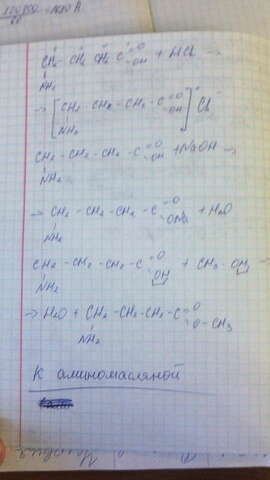 CH₂ - CH₂ CH₂ C =O -OH + HCl →
NH₂
→ [CH₂ - CH₂ - CH₂ - C =O OH]⁺ Cl⁻
NH₂
CH₂ - CH₂ - CH₂ - C =O OH + NaOH →
NH₂
→ CH₂ - CH₂ - CH₂ - C =O ONa + H₂O
NH₂
CH₂ - CH₂ - CH₂ - C =O OH + CH₃ - OH →
NH₂
→ H₂O + CH₂ - CH₂ - CH₂ - C =O O - CH₃
NH₂
К аминомасляной